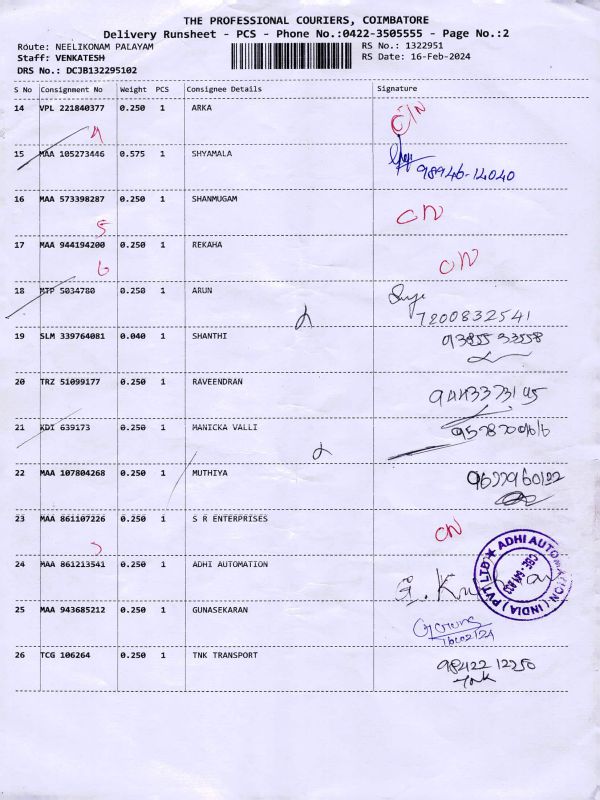 THE PROFESSIONAL COURIERS, COIMBATORE
Delivery Runsheet - PCS - Phone No.:0422-3505555 - Page No.:2
Route: NEELIKONAM PALAYAM
RS No.: 1322951
Staff: VENKATESH
RS Date: 16-Feb-2024
DRS No.: DCJB132295102
S No Consignment No Weight PCS Consignee Details Signature
14 VPL 221840377 0.250 1 ARKA CN
15 MAA 105273446 0.575 1 SHYAMALA 98946-14040
16 MAA 573398287 0.250 1 SHANMUGAM CN
5
17 MAA 944194200 0.250 1 REKAHA CN
6
18 MTP 5034780 0.250 1 ARUN 7200832541
19 SLM 339764081 0.040 1 SHANTHI
20 TRZ 51099177 0.250 1 RAVEENDRAN
21 KDI 639173 0.250 1 MANICKA VALLI
22 MAA 107804268 0.250 1 MUTHIYA
23 MAA 861107226 0.250 1 S R ENTERPRISES CN
24 MAA 861213541 0.250 1 ADHI AUTOMATION
ADHI AUTOMATION (INDIA) PVT LTD
25 MAA 943685212 0.250 1 GUNASEKARAN
26 TCG 106264 0.250 1 TNK TRANSPORT 98422 12250
TNK